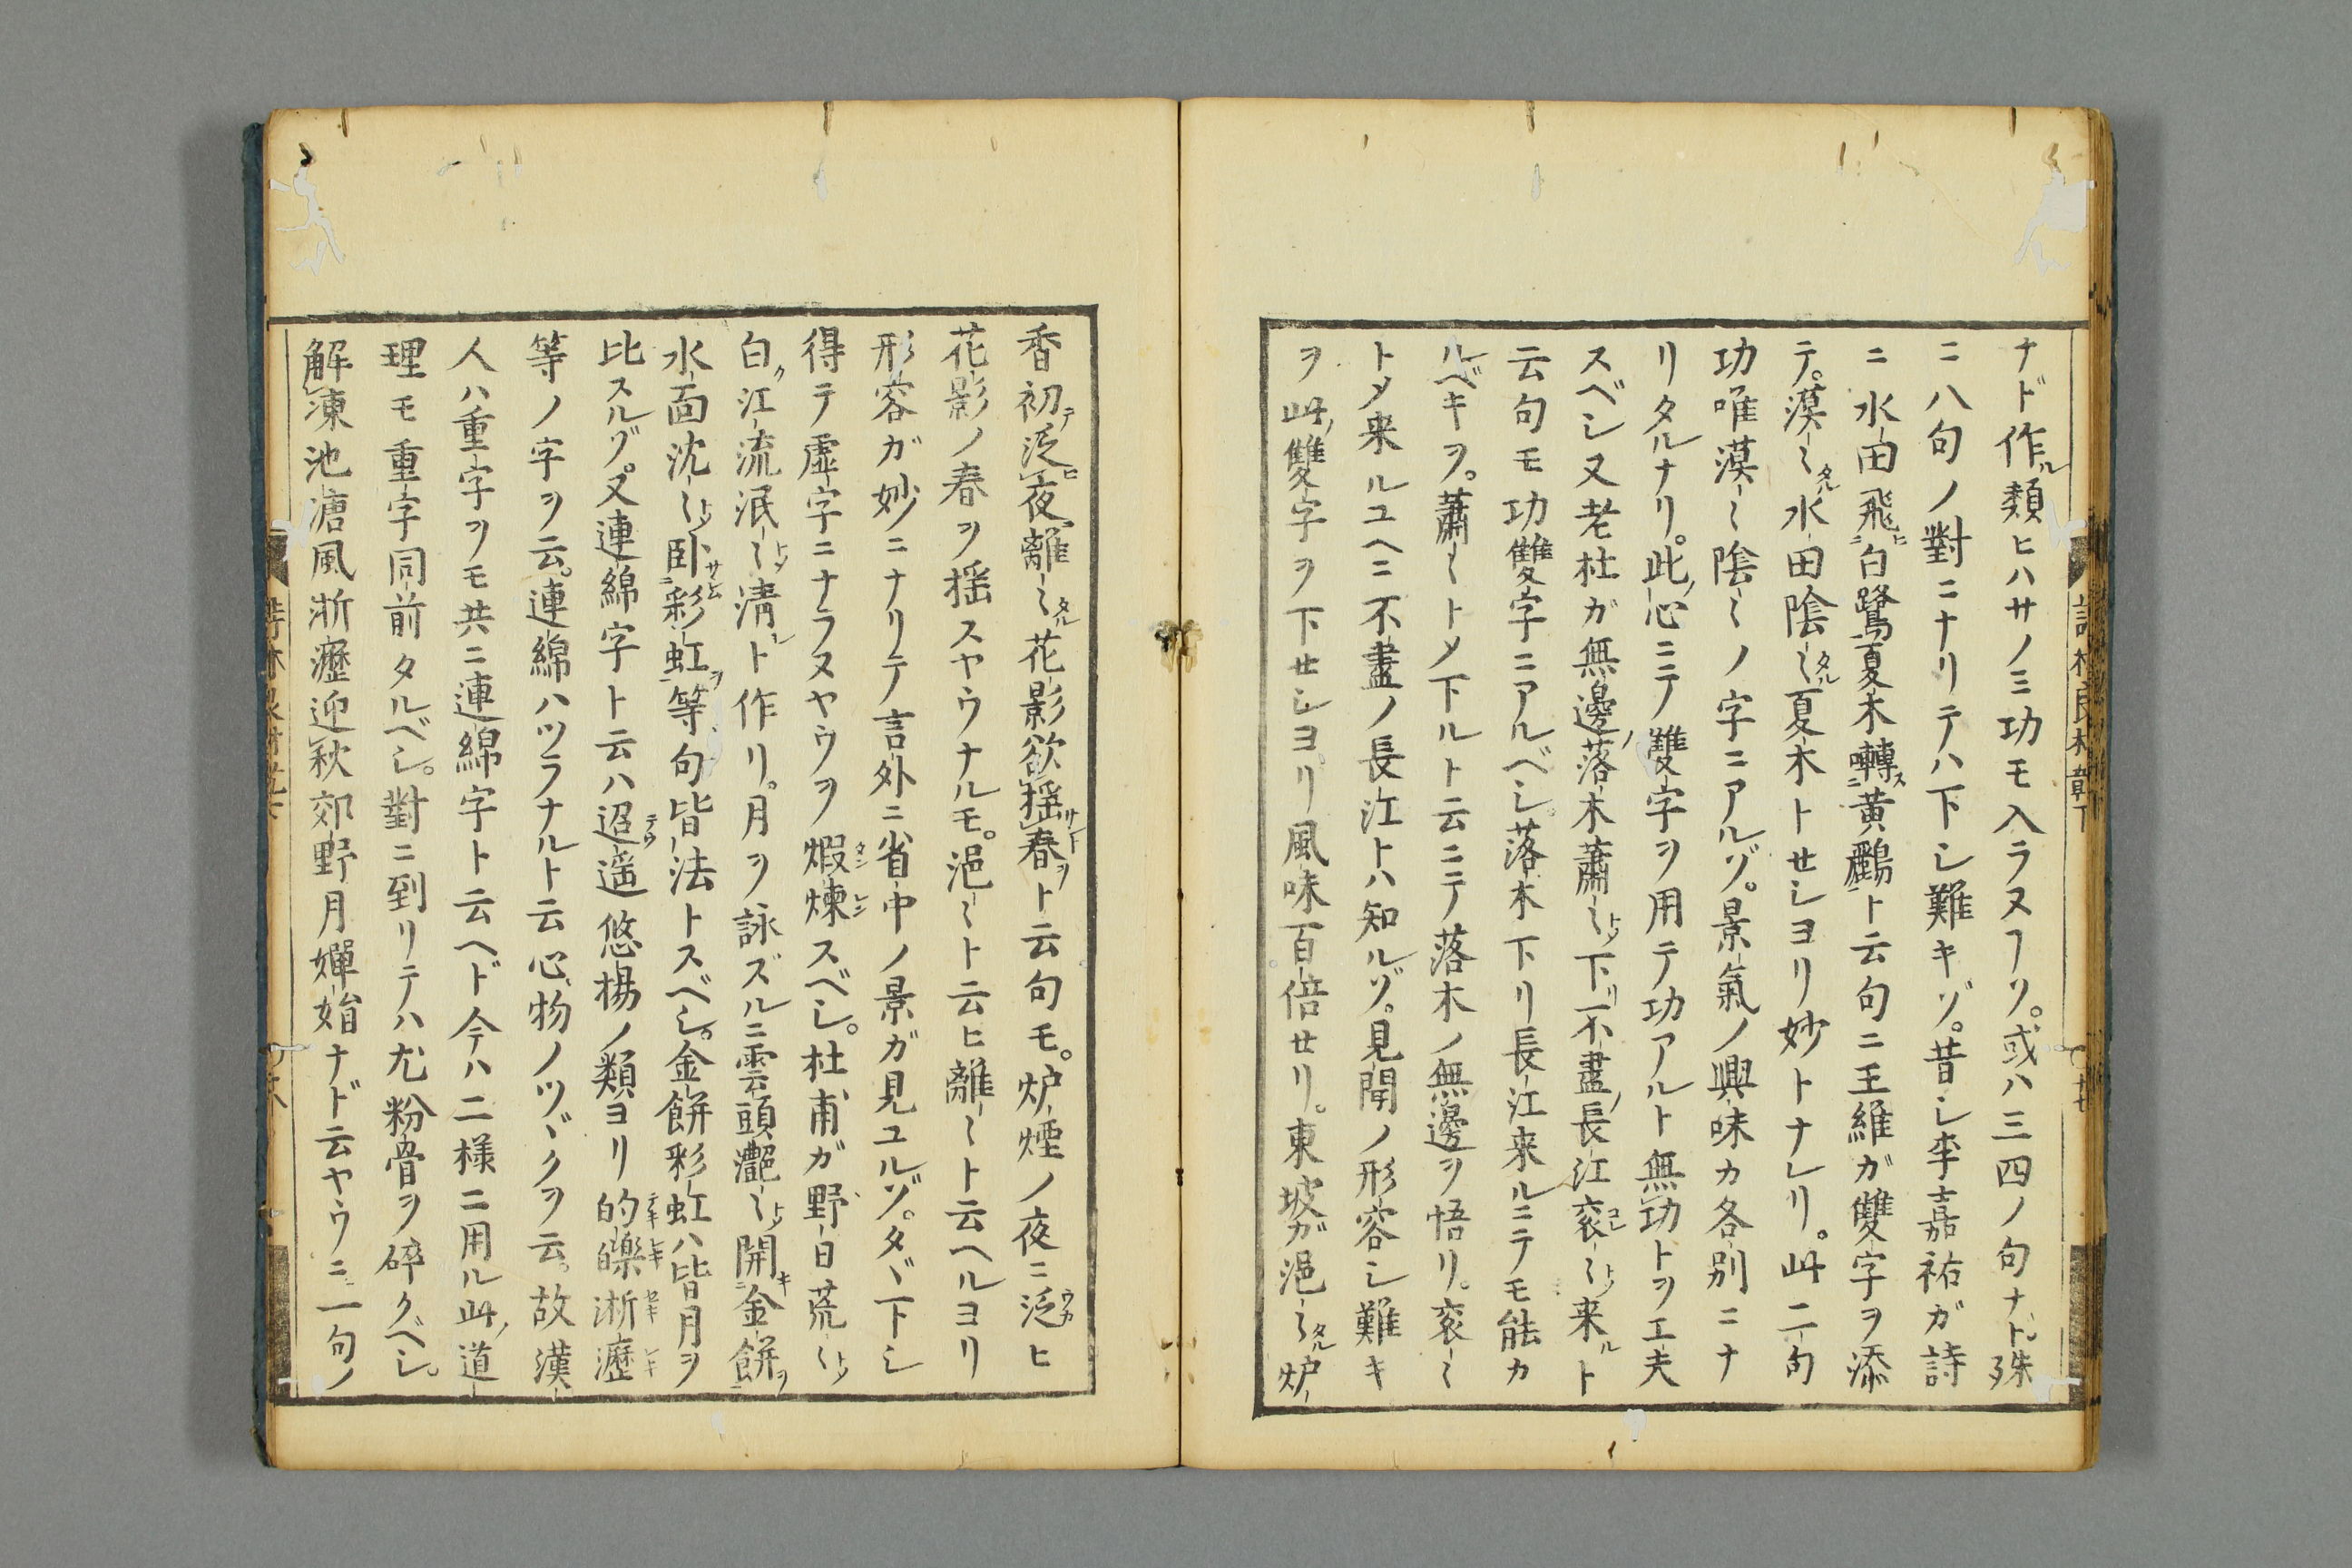 ナド作ル類ヒハサノミ功モ入ラヌヿリ。或ハ三四ノ句ナド殊
ニ八句ノ對ニナリテハ下シ難キゾ。昔シ李嘉祐ガ詩
ニ水田飛ヒ白鷺夏木囀ス黄鸝ト云句ニ王維ガ雙字ヲ添
テ。漠〻タル水田陰〻タル夏木トセシヨリ妙トナレリ。此二句
功唯漠〻陰〻ノ字ニアルゾ。景氣ノ興味カ各別ニナ
リタルナリ。此ノ心ニテ雙字ヲ用テ功アルト無功トヲ工夫
スベシ又老杜ガ無邊ノ落木蕭〻トメ下リ不盡ノ長江衮〻トメ来ルト
云句モ功雙字ニアルベシ。落木下リ長江来ルニテモ能カ
ルベキヲ。蕭〻トメ下ルト云ニテ落木ノ無邊ヲ悟リ。衮〻
トメ来ルユヘニ不盡ノ長江トハ知ルゾ。見聞ノ形容シ難キ
ヲ此ノ雙字ヲ下セシヨリ風味百倍セリ。東坡ガ浥〻タル炉
香初テ泛ヒ夜離〻タル花影欲揺サント春ヲト云句モ。炉煙ノ夜ニ泛ウカヒ
花影ノ春ヲ揺スヤウナルモ。浥〻ト云ヒ離〻ト云ヘルヨリ
形容ガ妙ニナリテ言外ニ省中ノ景ガ見ユルゾ。タヾ下シ
得テ虚字ニナラヌヤウヲ煆タン煉レンスベシ。杜甫ガ野日荒〻トメ
白ク江流泯〻トメ清シト作リ。月ヲ詠ズルニ雲頭灔〻トメ開キ金餅ヲ
水面沈〻トメ卧サシム彩虹ヲ等ノ句皆法トスベシ。金餅彩虹ハ皆月ヲ
比スルゾ。又連綿字ト云ハ迢テウ遥悠揚ノ類ヨリ的テキ皪レキ淅セキ瀝レキ
等ノ字ヲ云。連綿ハツラナルト云心、物ノツヾクヲ云。故漢
人ハ重字ヲモ共ニ連綿字ト云ヘド今ハ二様ニ用ル此ノ道
理モ重字同前タルベシ。對ニ到リテハ尤粉骨ヲ碎クベシ。
解凍池塘風淅瀝迎秋郊野月嬋娟ナド云ヤウニ一句ノ